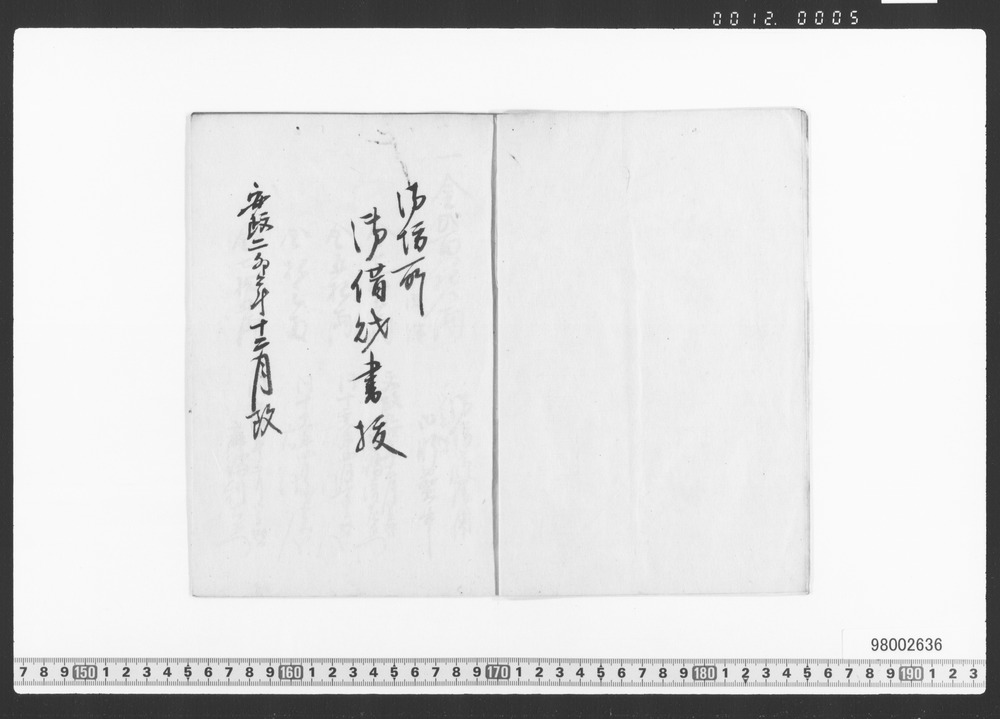 0012.0005
御借所
御借財書抜
安政二卯年十二月改
98002636
7 8 9 150 1 2 3 4 5 6 7 8 9 160 1 2 3 4 5 6 7 8 9 170 1 2 3 4 5 6 7 8 9 180 1 2 3 4 5 6 7 8 9 190 1 2 3